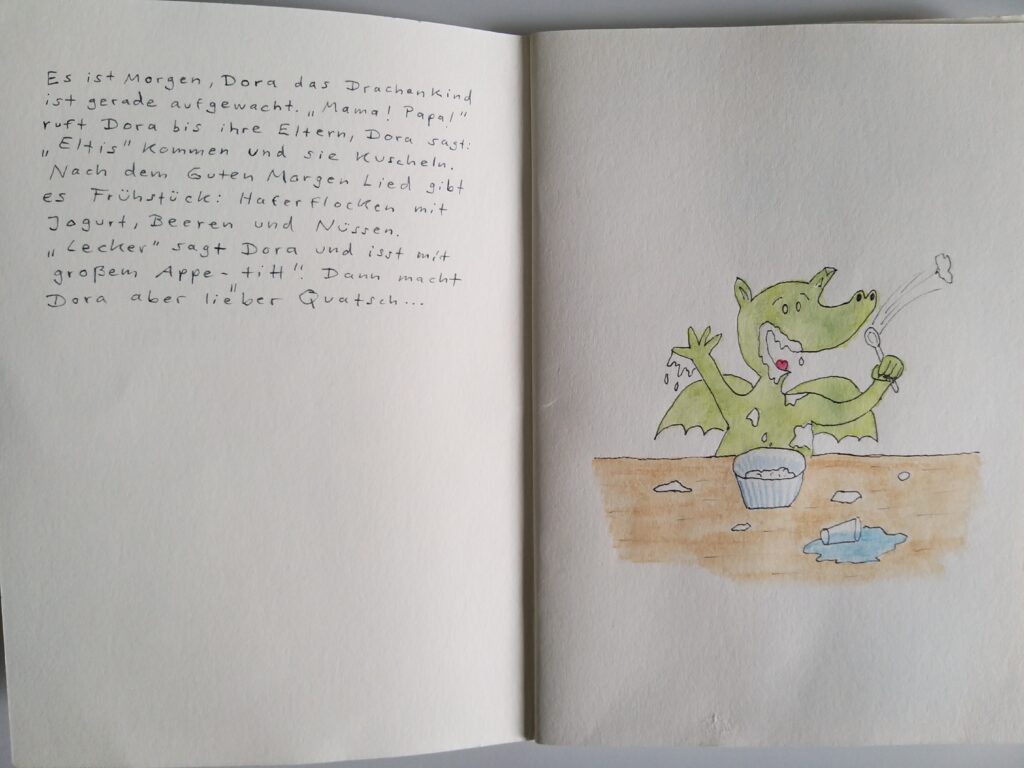 Es ist Morgen, Dora das Drachenkind
ist gerade aufgewacht. „Mama! Papa!"
ruft Dora bis ihre Eltern, Dora sagt:
„Eltis" kommen und sie kuscheln.
Nach dem Guten Morgen Lied gibt
es Frühstück: Haferflocken mit
Jogurt, Beeren und Nüssen.
„Lecker" sagt Dora und isst mit
großem Appe-titt"! Dann macht
Dora aber lieber Quatsch...